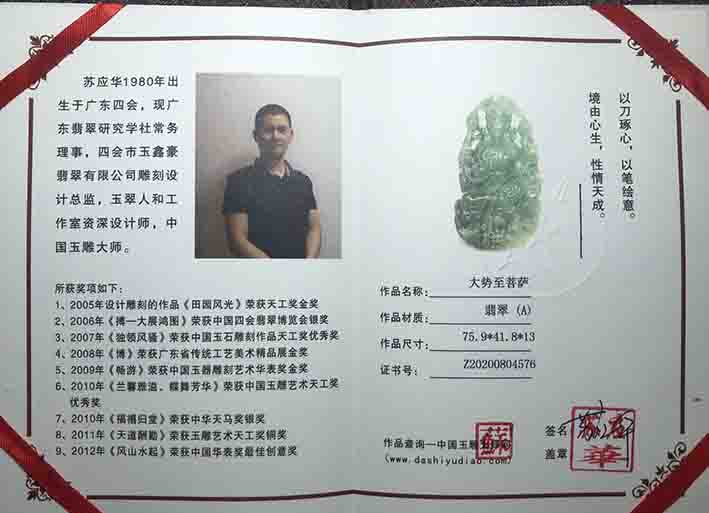 苏应华1980年出
生于广东四会，现广
东翡翠研究学社常务
理事，四会市玉鑫豪
翡翠有限公司雕刻设
计总监，玉翠人和工
作室资深设计师，中
国玉雕大师。
所获奖项如下：
1、2005年设计雕刻的作品《田园风光》荣获天工奖金奖
2、2006年《搏—大展鸿图》荣获中国四会翡翠博览会银奖
3、2007年《独领风骚》荣获中国玉石雕刻作品天工奖优秀奖
4、2008年《博》荣获广东省传统工艺美术精品展金奖
5、2009年《畅游》荣获中国玉器雕刻艺术华表奖金奖
6、2010年《兰馨雅溢、蝶舞芳华》荣获中国玉雕艺术天工奖
优秀奖
7、2010年《福禧归堂》荣获中华天马奖银奖
8、2011年《天道酬勤》荣获玉雕艺术天工奖铜奖
9、2012年《风山水起》荣获中国华表奖最佳创意奖
以刀琢心，以笔绘意。
境由心生，性情天成。
作品名称：大势至菩萨
作品材质：翡翠（A）
作品尺寸：75.9*41.8*13
证书号：Z20200804576
作品查询—中国玉雕
(www.dashiyudiao.com)
蘇
签名
盖章
華